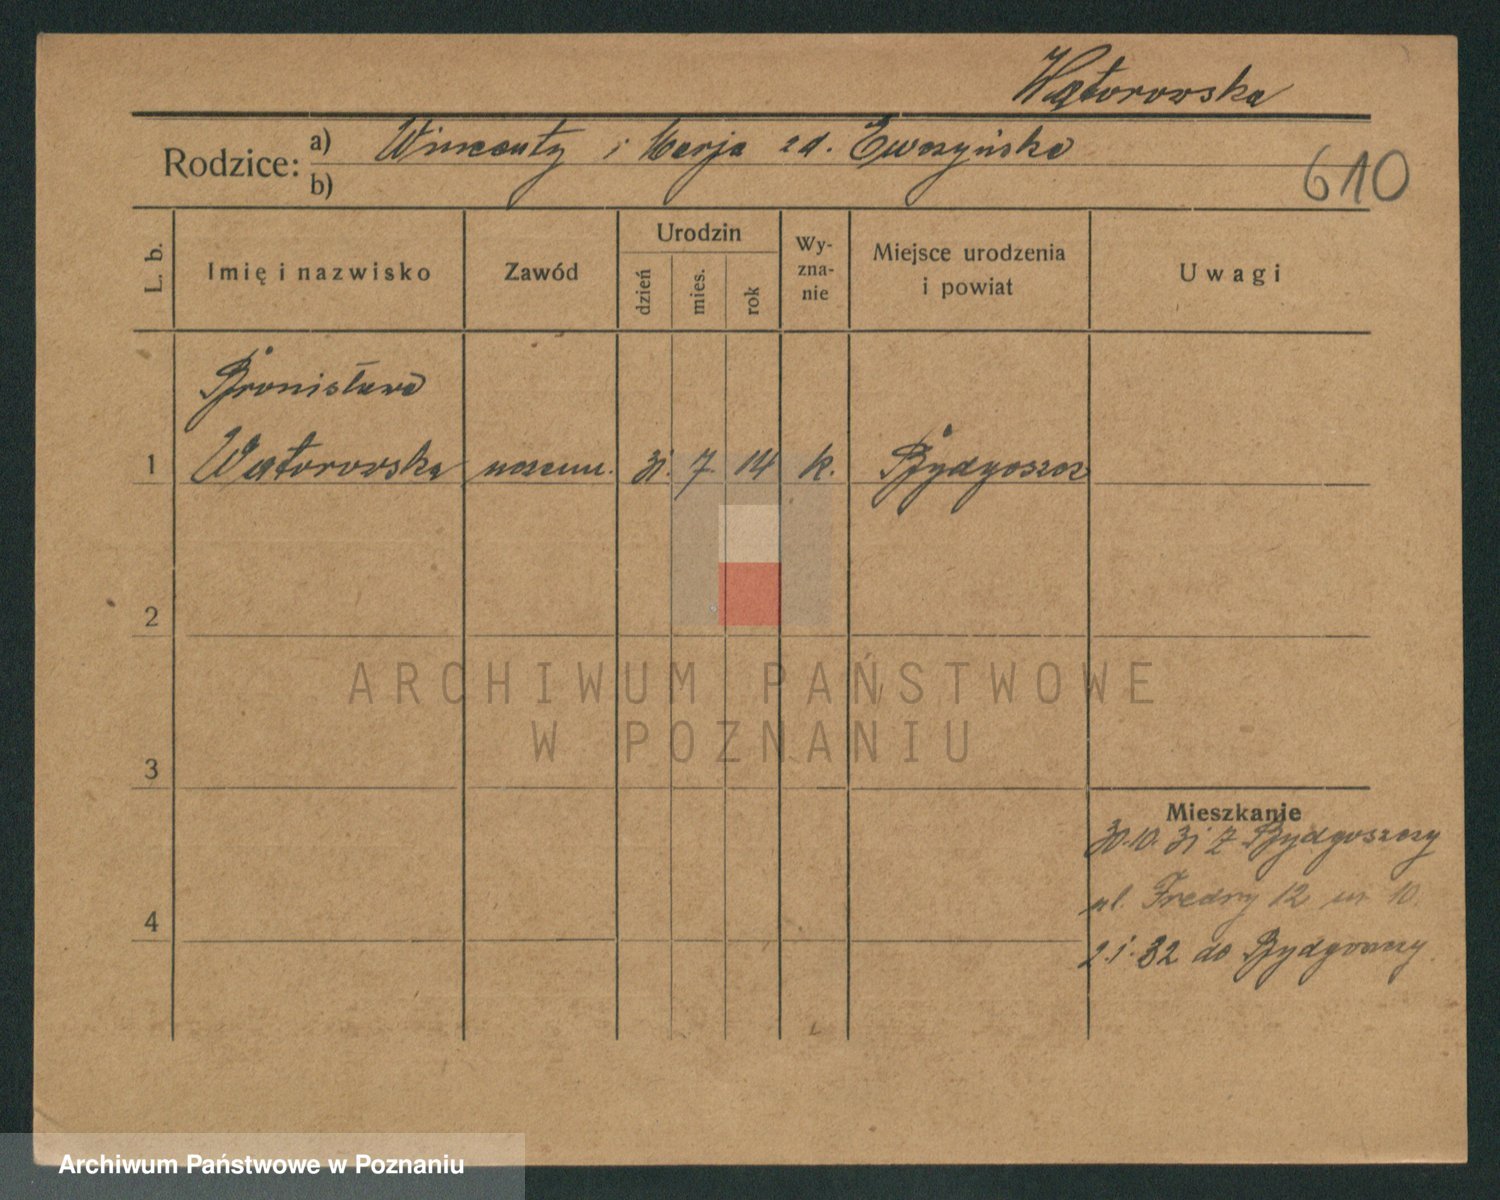 Wątorowska
Rodzice: a) Wincenty i Marja zd.
b)
610
L. b. Imię i nazwisko Zawód Urodzin dzień mies. rok Wy-zna-nie Miejsce urodzenia i powiat Uwagi
Bronisława
1 Wątorowska uczenn. 31. 7. 14 k. Bydgoszcz
2
ARCHIWUM PAŃSTWOWE
W POZNANIU
3
Mieszkanie
30.10.31 z Bydgoszczy
ul. Fredry 12 m 10.
4
2.1.32 do Bydgoszczy.
Archiwum Państwowe w Poznaniu